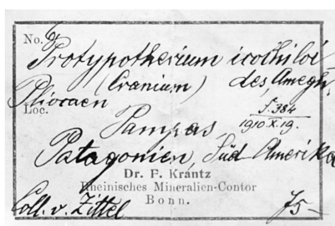 No. 6
Protypotherium icochiloi
(Cranium) des Amegh.
Pliocaen
Loc.
S. 384
1910 X. 19.
Pampas,
Patagonien, Süd Amerika
Dr. F. Krantz
Rheinisches Mineralien-Contor
Bonn.
Coll. v. Zittel
75-